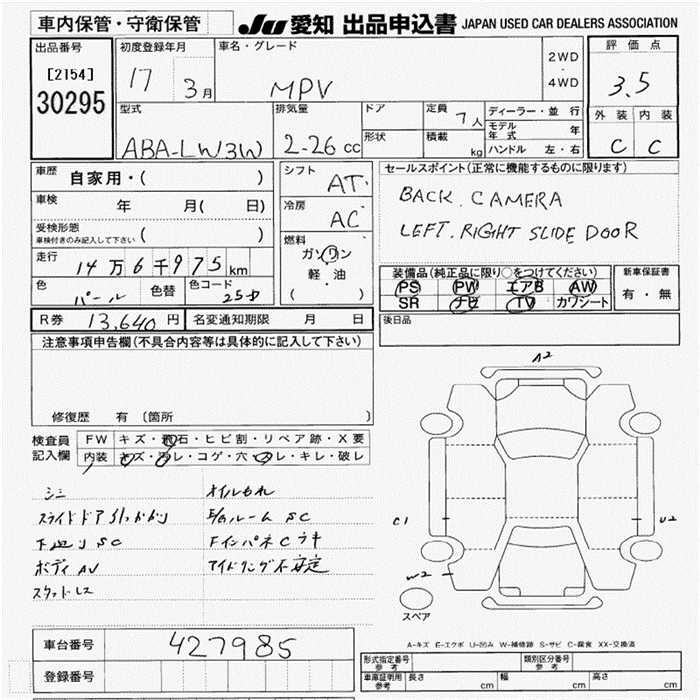 車内保管・守衛保管
JU 愛知 出品申込書 JAPAN USED CAR DEALERS ASSOCIATION
出品番号
[2154]
30295
初度登録年月
17 3月
車名・グレード
MPV
2WD
・
4WD
評価点
3.5
外装 内装
C C
型式
ABA-LW3W
排気量
2-26 cc
ドア
形状
定員
7人
積載
kg
ディーラー・並行
モデル年式 年
ハンドル 左・右
車歴
自家用・( )
車検
年 月( 日)
受検形態
車検付きのみ記入して下さい ( )
走行
14万6千975km
色
パール
色替
色コード
25D
シフト
AT
冷房
AC
燃料
ガソリン
軽・油
( )
セールスポイント(正常に機能するものに限ります)
BACK. CAMERA
LEFT. RIGHT SLIDE DOOR
装備品(純正品に限り○をつけてください)
PS PW エアB AW
SR ナビ TV カワシート
新車保証書
有・無
R券 13,640 円 名変通知期限 月 日
後日品
注意事項申告欄(不具合内容等は具体的に記入して下さい)
修復歴 有 〔箇所 〕
検査員記入欄
FW キズ・飛石・ヒビ割・リペア跡・X要
内装 キズ・汚レ・コゲ・穴・スレ・キレ・破レ
オイルもれ
スライドドア引っかかり
E/gルーム SC
下廻り SC
FインパネCラキ
ボディ AU
アイドリング不安定
A2
C1
U2
W2
スペア
A-キズ E-エクボ U-凹み W-補修跡 S-サビ C-腐食 XX-交換済
車台番号
427985
登録番号
形式指定番号
参考
類別区分番号
参考
車庫証明用
参考
長さ cm 幅 cm 高さ cm